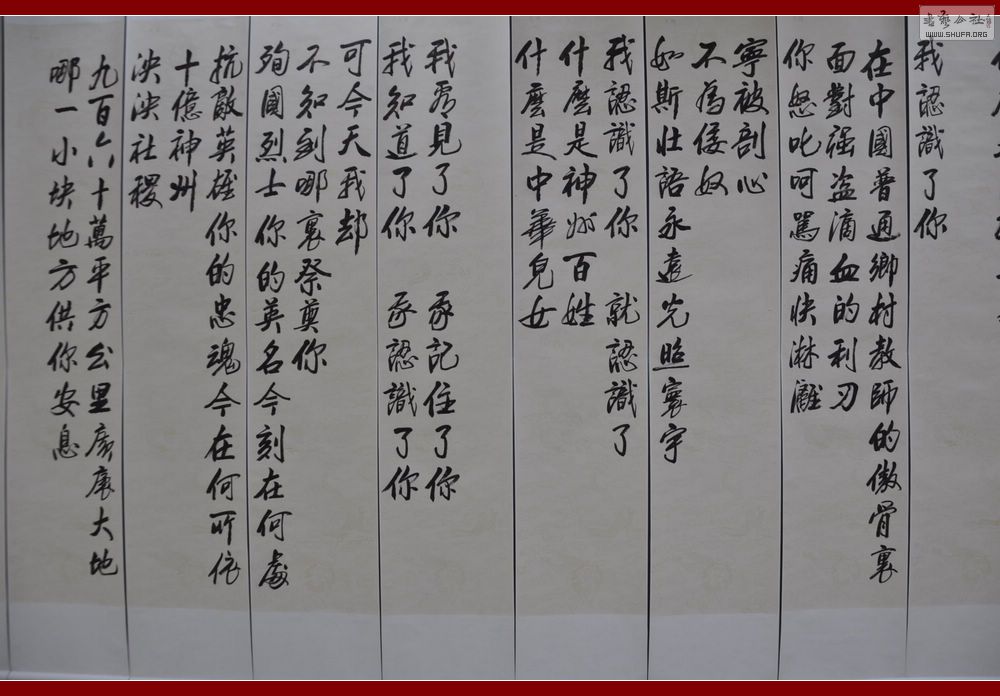 我認識了你
在中國普通鄉村教師的傲骨裏
面對强盗滴血的利刃
你怒叱呵罵痛快淋灕
寧被剖心
不爲倭奴
如斯壮語永遠光照寰宇
我認識了你 就認識了
什麽是神州百姓
什麽是中華兒女
我看見了你 承記住了你
我知道了你 承認識了你
可今天我却
不知到哪裏祭奠你
殉國烈士你的英名今刻在何處
抗敵英雄你的忠魂今在何所依
十億神州
泱泱社稷
九百六十萬平方公里廣廣大地
哪一小块地方供你安息
書藝公社
WWW.SHUFA.ORG